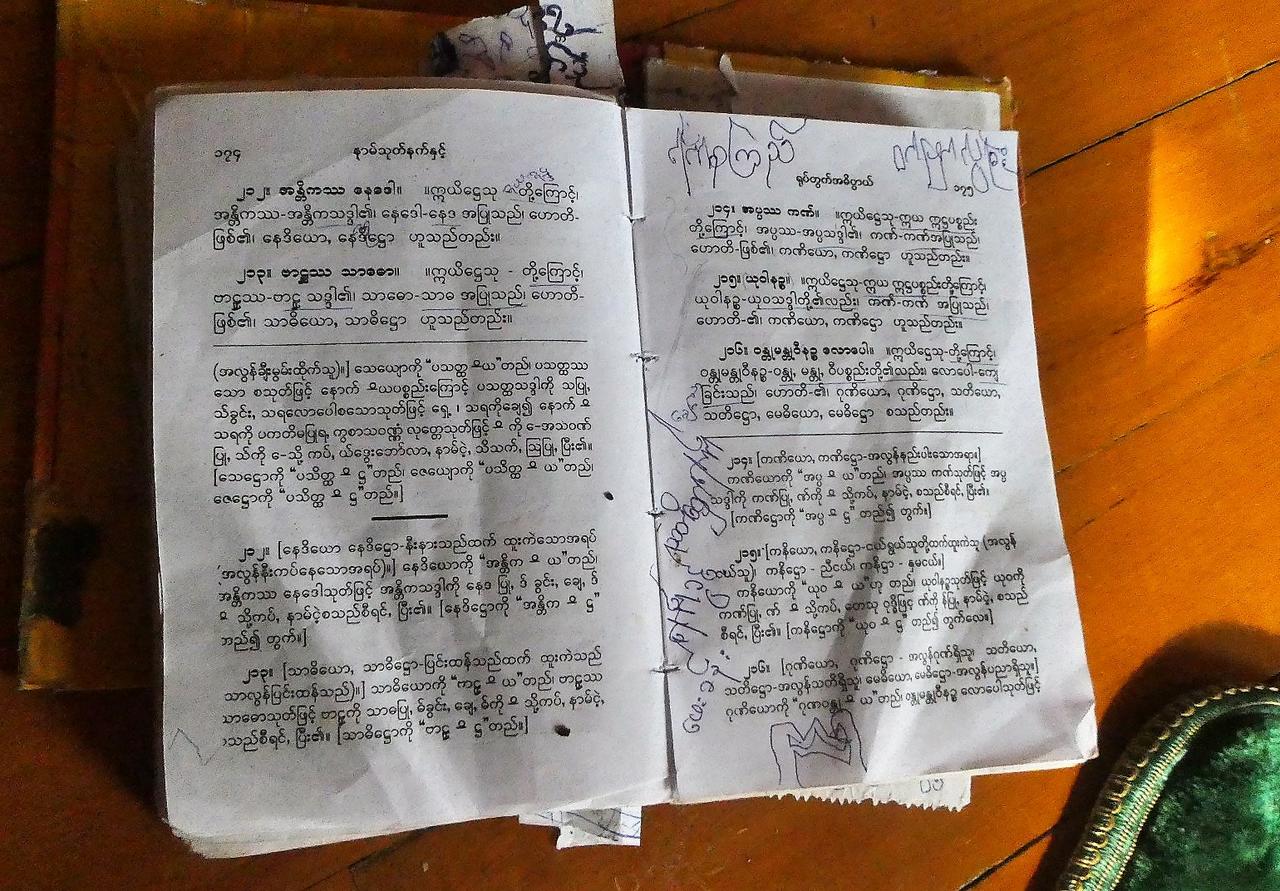 ၁၇၄ နာမ်သုတ်နက်နှင့်
၂၁၂။ အန္တိကဿ နေဒေါ။ ။ဣယိဋ္ဌေသု တို့ကြောင့်၊
အန္တိကဿ-အန္တိကသဒ္ဒါ၏၊ နေဒေါ-နေဒ အပြုသည်၊ ဟောတိ-
ဖြစ်၏၊ နေဒိယော, နေဒိဋ္ဌော ဟူသည်တည်း။
၂၁၃။ ဗာဠှဿ သာဓော။ ။ဣယိဋ္ဌေသု - တို့ကြောင့်၊
ဗာဠှဿ-ဗာဠှ သဒ္ဒါ၏၊ သာဓော-သာဓ အပြုသည်၊ ဟောတိ-
ဖြစ်၏၊ သာဓိယော, သာဓိဋ္ဌော ဟူသည်တည်း။
(အလွန်ချီးမွမ်းထိုက်သူ)။] သေယျောကို “ပသတ္ထ သိ ယ”တည်၊ ပသတ္ထဿ
သော စသုတ်ဖြင့် နောက် ယပစ္စည်းကြောင့် ပသတ္ထသဒ္ဒါကို သပြု,
သ်ခွင်း, သရလောပေါစသောသုတ်ဖြင့် ရှေ့
သရကို ပကတိမပြုရ, ကွစာသဝဏ္ဏံ လုတ္တေသုတ်ဖြင့် ကို ဧ-အသဝဏ်
ပြု, သ်ကို ဧ-သို့ ကပ်, ယ်ဒွေးဘော်လာ, နာမ်ငဲ့, သိသက်, ဩပြု, ပြီး၏။
[သေဋ္ဌောကို “ပသတ္ထ သိ ဋ္ဌ”တည်၊ ဇေယျောကို “ပသတ္ထ သိ ယ”တည်၊
ဇေဋ္ဌောကို “ပသတ္ထ သိ ဋ္ဌ”တည်။]
၂၁၂။ [နေဒိယော နေဒိဋ္ဌော-နီးနားသည်ထက် ထူးကဲသောအရပ်
(အလွန်နီးကပ်နေသောအရပ်)။] နေဒိယောကို “အန္တိက သိ ယ”တည်၊
အန္တိကဿ နေဒေါသုတ်ဖြင့် အန္တိကသဒ္ဒါကို နေဒ ပြု, ဒ် ခွင်း, ချေ, ဒ်
သို့ကပ်, နာမ်ငဲ့စသည်စီရင်, ပြီး၏။ [နေဒိဋ္ဌောကို “အန္တိက သိ ဋ္ဌ”
တည်၍ တွက်။]
၂၁၃။ [သာဓိယော, သာဓိဋ္ဌော-ပြင်းထန်သည်ထက် ထူးကဲသည်
သာလွန်ပြင်းထန်သည်)။] သာဓိယောကို “ဗာဠှ သိ ယ”တည်၊ ဗာဠှဿ
သာဓောသုတ်ဖြင့် ဗာဠှကို သာဓပြု, ဓ်ခွင်း, ချေ, ဓ်ကို သို့ကပ်, နာမ်ငဲ့,
စသည်စီရင်, ပြီး၏။ [သာဓိဋ္ဌောကို “ဗာဠှ သိ ဋ္ဌ”တည်။]
ရုပ်တွက်အဓိပ္ပာယ် ၁၇၅
၂၁၄။ အပ္ပဿ ကဏ်။ ။ဣယိဋ္ဌေသု-ဣယ ဣဋ္ဌပစ္စည်း
တို့ကြောင့်၊ အပ္ပဿ-အပ္ပသဒ္ဒါ၏၊ ကဏ်-ကဏ်အပြုသည်၊
ဟောတိ-ဖြစ်၏၊ ကဏိယော, ကဏိဋ္ဌော ဟူသည်တည်း။
၂၁၅။ ယုဝါနဉ္စ။ ။ဣယိဋ္ဌေသု-ဣယ ဣဋ္ဌပစ္စည်းတို့ကြောင့်၊
ယုဝါနဉ္စ-ယုဝသဒ္ဒါတို့၏လည်း၊ ကဏ်-ကဏ် အပြုသည်၊
ဟောတိ-၏၊ ကဏိယော, ကဏိဋ္ဌော ဟူသည်တည်း။
၂၁၆။ ဝန္တုမန္တုဝီနဉ္စ လောပေါ။ ။ဣယိဋ္ဌေသု-တို့ကြောင့်၊
ဝန္တုမန္တုဝီနဉ္စ-ဝန္တု, မန္တု, ဝီပစ္စည်းတို့၏လည်း၊ လောပေါ-ကျေ
ခြင်းသည်၊ ဟောတိ-၏၊ ဂုဏိယော, ဂုဏိဋ္ဌော, သတိယော,
သတိဋ္ဌော, မေဓိယော, မေဓိဋ္ဌော စသည်တည်း။
၂၁၄။ [ကဏိယော, ကဏိဋ္ဌော-အလွန်နည်းပါးသောအရာ။]
ကဏိယောကို “အပ္ပ သိ ယ”တည်၊ အပ္ပဿ ကဏ်သုတ်ဖြင့် အပ္ပ
သဒ္ဒါကို ကဏ်ပြု, ဏ်ကို သို့ကပ်, နာမ်ငဲ့, စသည်စီရင်, ပြီး၏။
[ကဏိဋ္ဌောကို “အပ္ပ သိ ဋ္ဌ”တည်၍ တွက်။]
၂၁၅။ [ကနိယော, ကနိဋ္ဌော-ငယ်ရွယ်သူတို့ထက်ထူးကဲသူ (အလွန်
ငယ်သူ)၊ ကနိဋ္ဌော - ညီငယ်၊ ကနိဋ္ဌာ - နှမငယ်။]
ကနိယောကို “ယုဝ သိ ယ”ဟု တည်၊ ယုဝါနဉ္စသုတ်ဖြင့် ယုဝကို
ကဏ်ပြု, ဏ် သို့ကပ်, တေသု ဝုဒ္ဓိဖြင့် ဏ်ကို န်ပြု, နာမ်ငဲ့, စသည်
စီရင်, ပြီး၏။ [ကနိဋ္ဌောကို “ယုဝ သိ ဋ္ဌ”တည်၍ တွက်လေ။]
၂၁၆။ [ဂုဏိယော, ဂုဏိဋ္ဌော - အလွန်ဂုဏ်ရှိသူ၊ သတိယော,
သတိဋ္ဌော-အလွန်သတိရှိသူ၊ မေဓိယော, မေဓိဋ္ဌော-အလွန်ပညာရှိသူ။]
ဂုဏိယောကို “ဂုဏဝန္တု သိ ယ”တည်၊ ဝန္တုမန္တုဝီနဉ္စ လောပေါသုတ်ဖြင့်